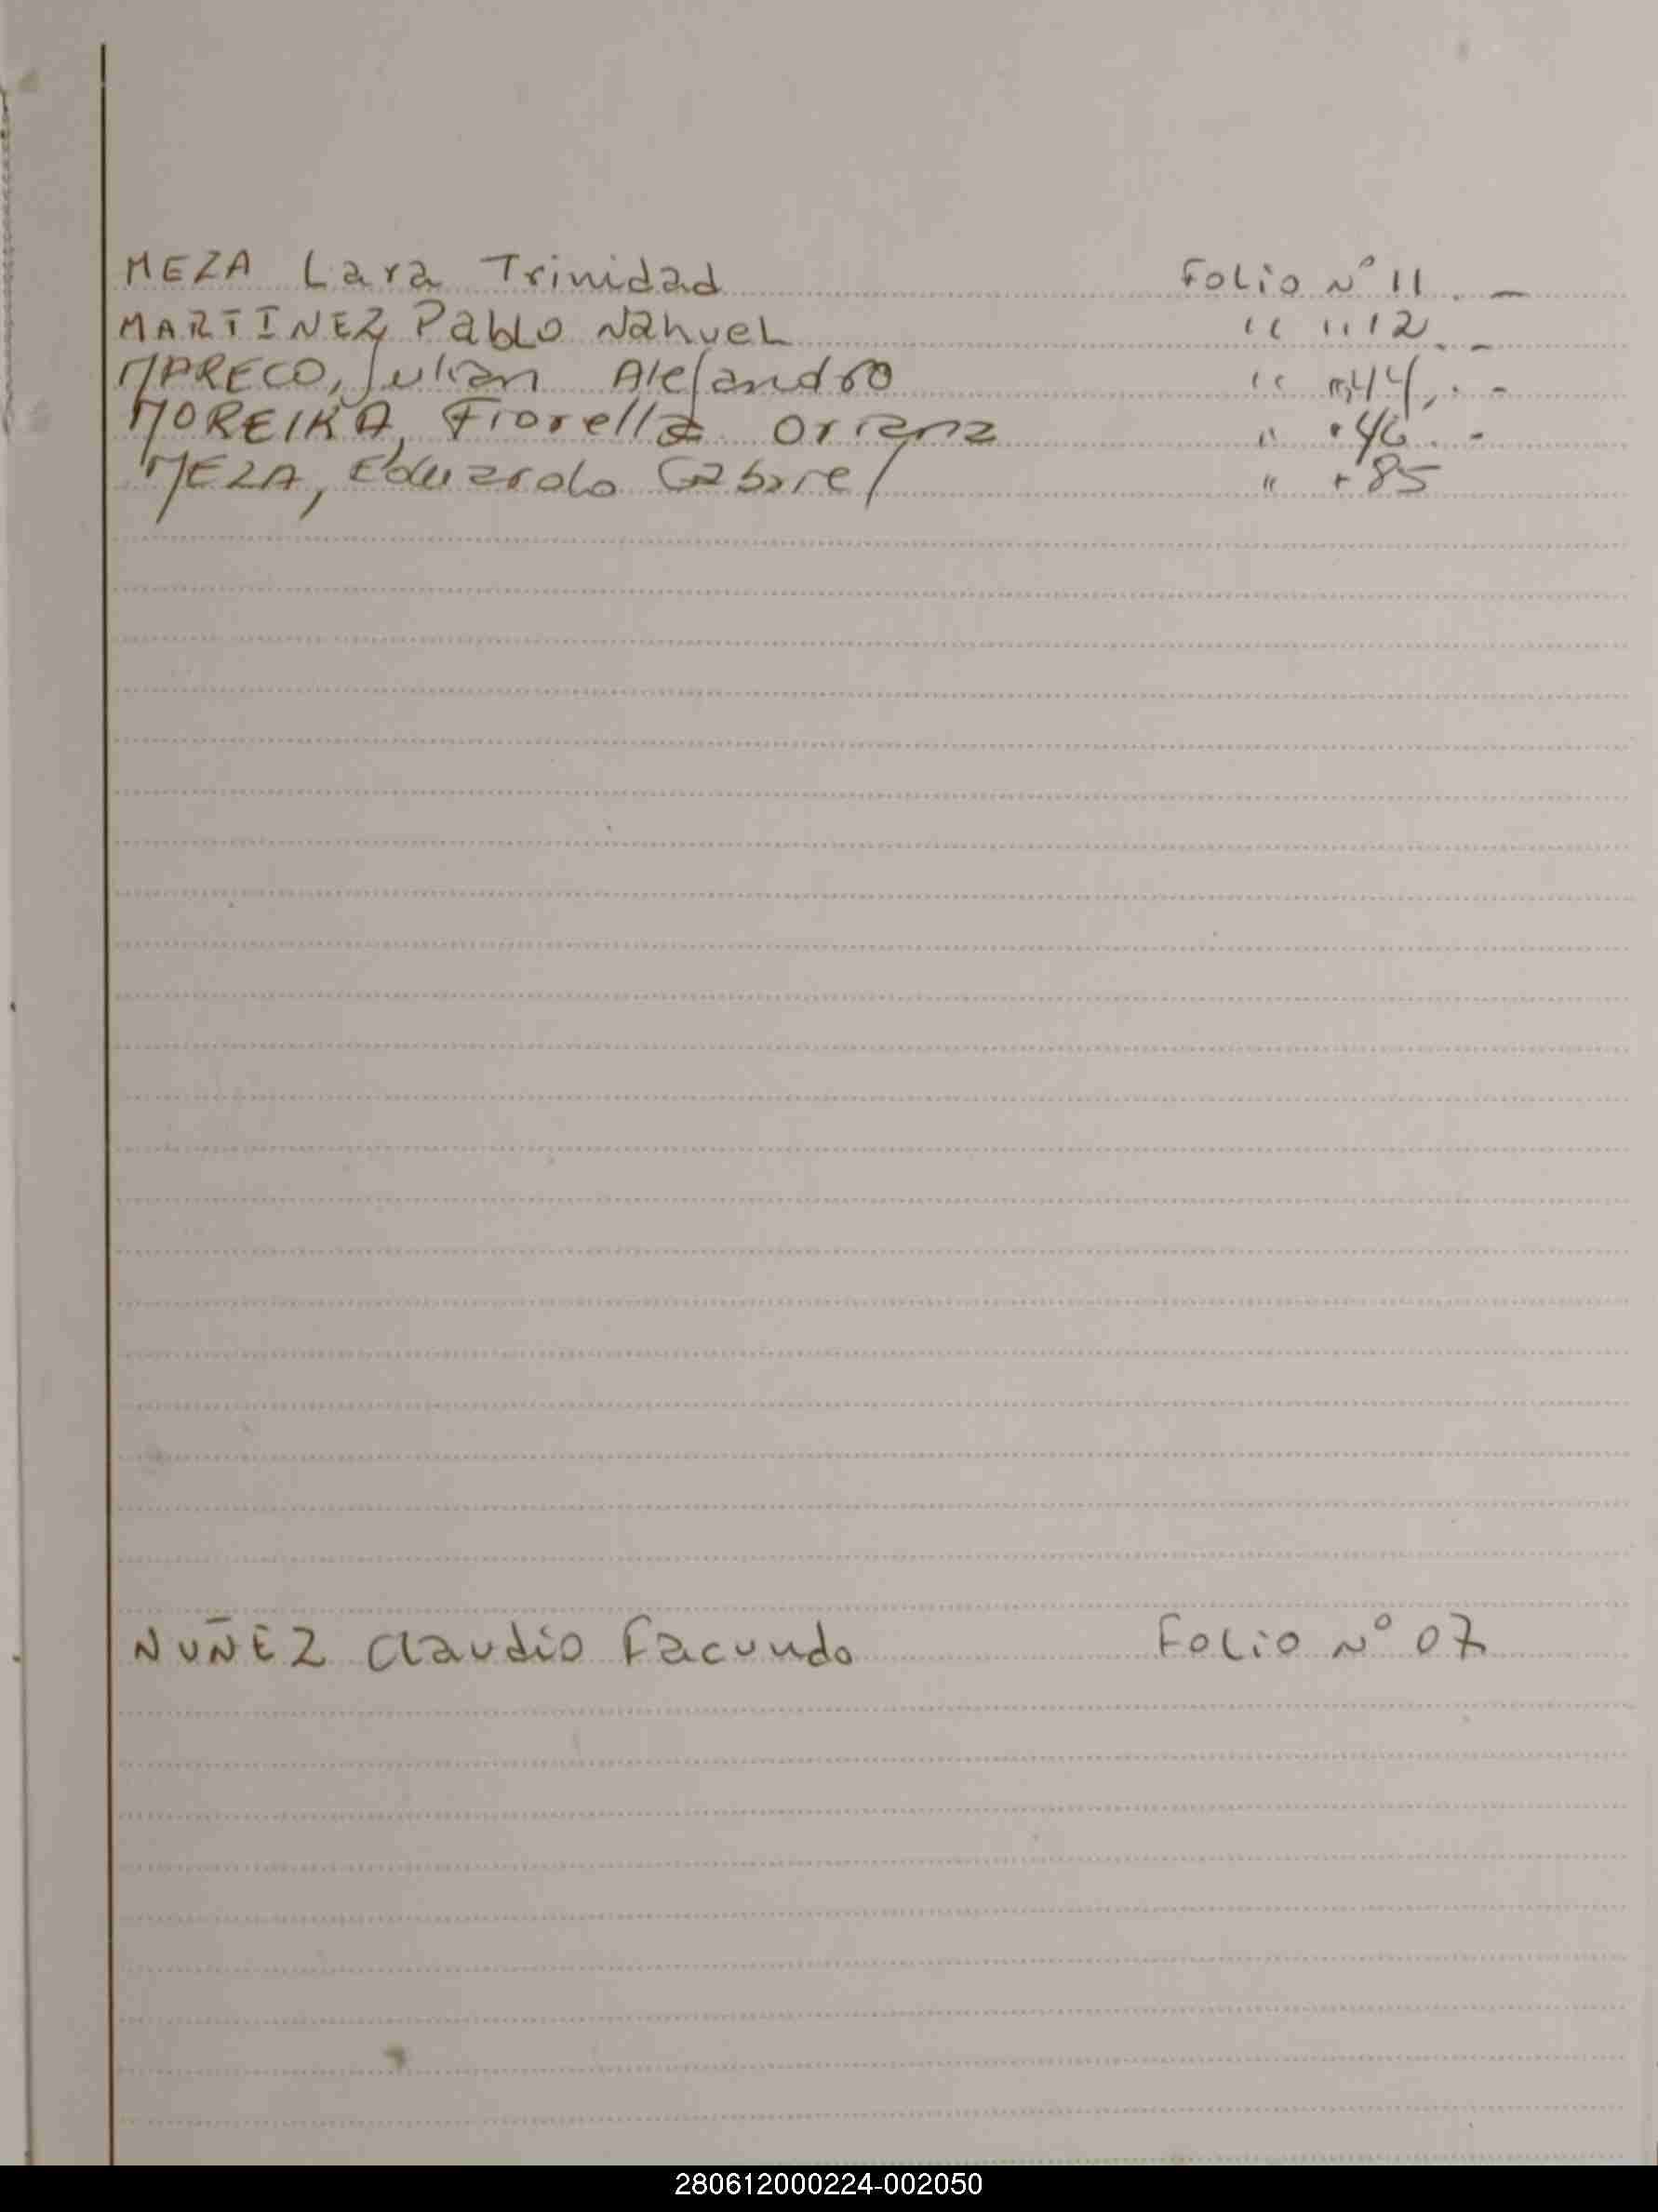 MEZA Lara Trinidad Folio N° 11. —
MARTINEZ Pablo Nahuel " " 12. -
MARECO, Julian Alejandro " " 44. -
MOREIRA, Fiorella Oriana " " 46. -
MEZA, Eduardo Gabriel " " 85
NUÑEZ Claudio Facundo Folio N° 07
280612000224-002050